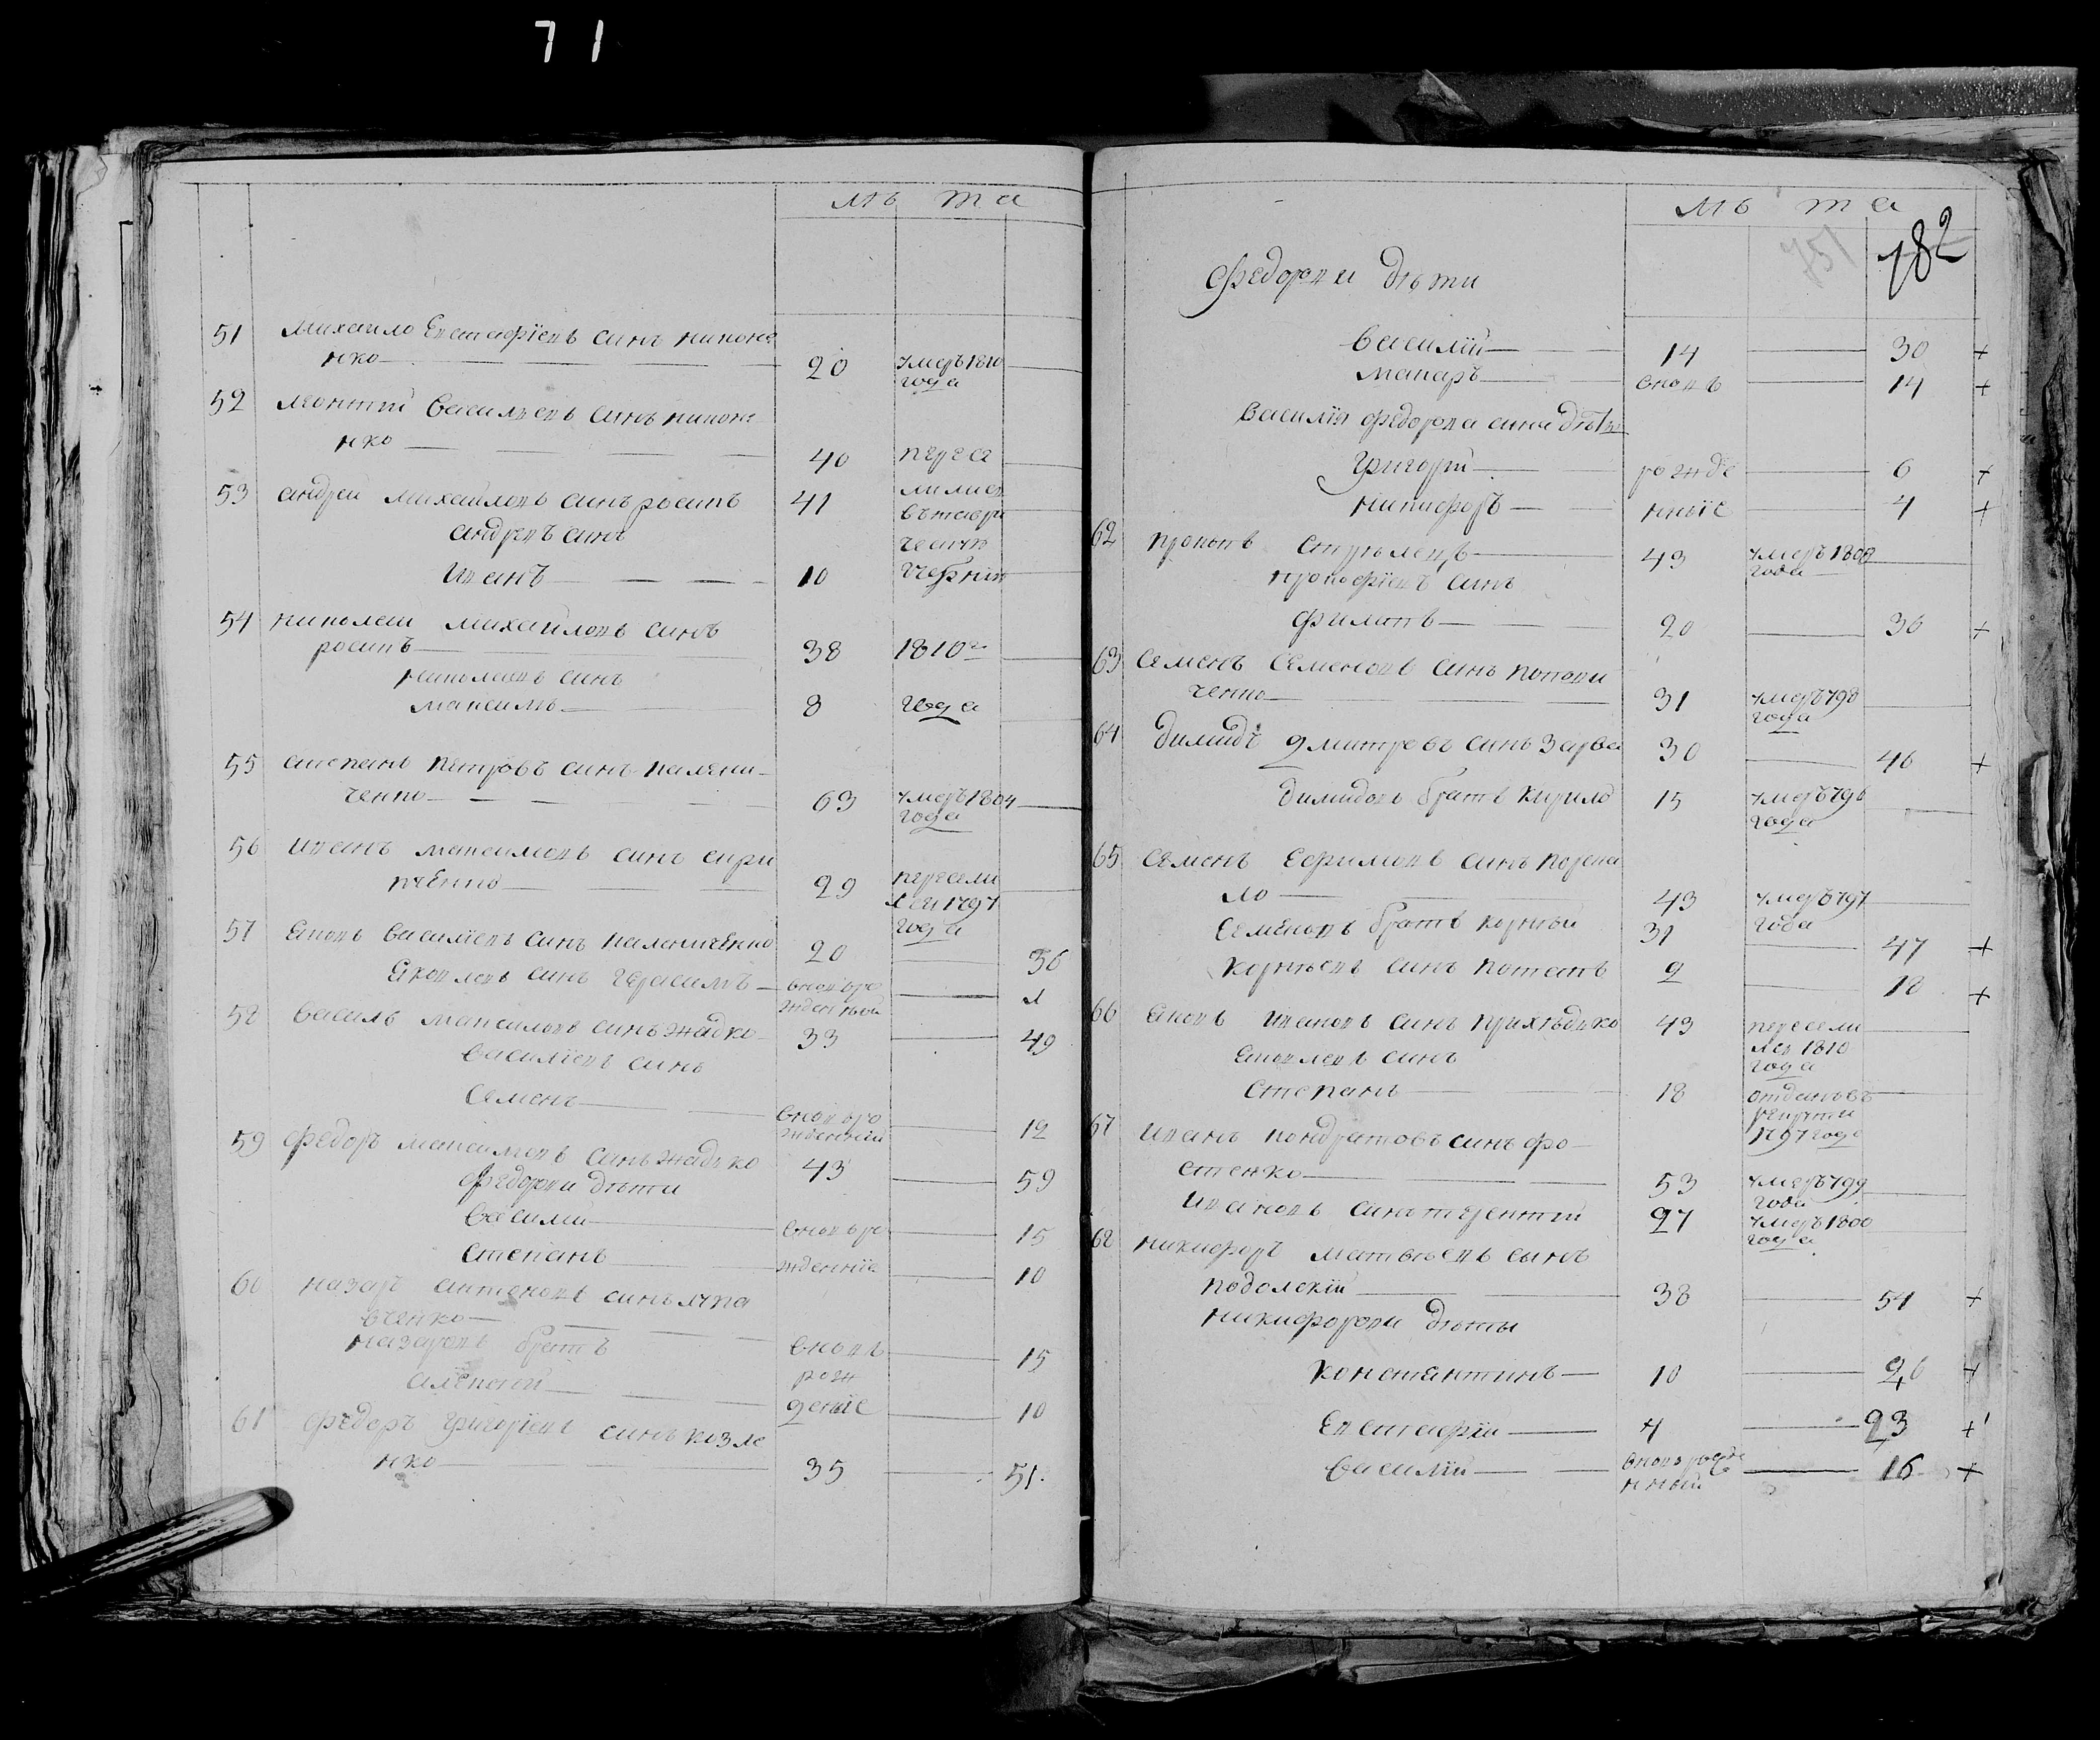 71
лѣ та
51 Михайло Евстафїевъ синъ никоне
нко 20 умеръ 1810
года
52 Леонтий Васильевъ синъ никоне
нко 40 пересе
53 андрей Михайловъ синъ росипъ 41 лилися
андреевъ синъ въ таври
ческую
Иванъ 10 губернию
54 николай Михайловъ синъ
росипъ 38 1810го
николаевъ синъ
максимъ 8 года
55 степанъ Петровъ синъ паляни
ченко 63 умеръ 1804
года
56 Иванъ максимовъ синъ сири
ченко 29 пересели
лся 1797
года
57 Яковъ Василиевъ синъ паляниченко 20 36
Яковлевъ синъ герасимъ вновь ро
жденный
58 Василь максимовъ синъ жадко 33 49
Василиевъ синъ
Семенъ вновь ро
жденний 12
59 Федоръ максимовъ синъ жадько 43 59
Федорови дѣти
Василий вновь ро 15
Степанъ жденнїе 10
60 назаръ антоновъ синъ
вченко
назаровъ братъ вновь 15
алексѣй рож
деніе 10
61 Федоръ григорїевъ синъ козле
нко 35 51.
лѣ та
751
182
Федорови дѣти
Василїй 14 30 +
макаръ вновь 14 +
Василїя Федорова сина дѣти
Григорий рожде 6 +
никифоръ нныїе 4 +
62 прокопъ Стрѣлецъ 43 умеръ 1808
года
прокофїевъ синъ
Филипъ 20 36 +
63 Семенъ Семеновъ синъ
ченко 31 умеръ 798
года
64 Димидъ Дмитревъ синъ Зарва 30 46 +
Димидовъ братъ Кирило 15 умеръ 796
года
65 Семенъ Ефимовъ синъ
ло 43 умеръ 797
года
Семеновъ братъ корнѣй 31 47 +
Корнѣевъ синъ потапъ 2 18 +
66 Яковъ Ивановъ синъ прихѣдько 43 пересели
лся 1810
года
Яковлевъ синъ
Степанъ 18 отданъ въ
рекруты
1797 года
67 Иванъ кондратовъ синъ фо
стенко 53 умеръ 799
года
Ивановъ синъ терентий 27 умеръ 1800
года
68 никифоръ Матвѣевъ сынъ
подолскїй 38 54 +
никифорови дѣты
константинъ 10 26 +
Евстафїй 4 23 +
Василїй вновь рожде
нный 16 +